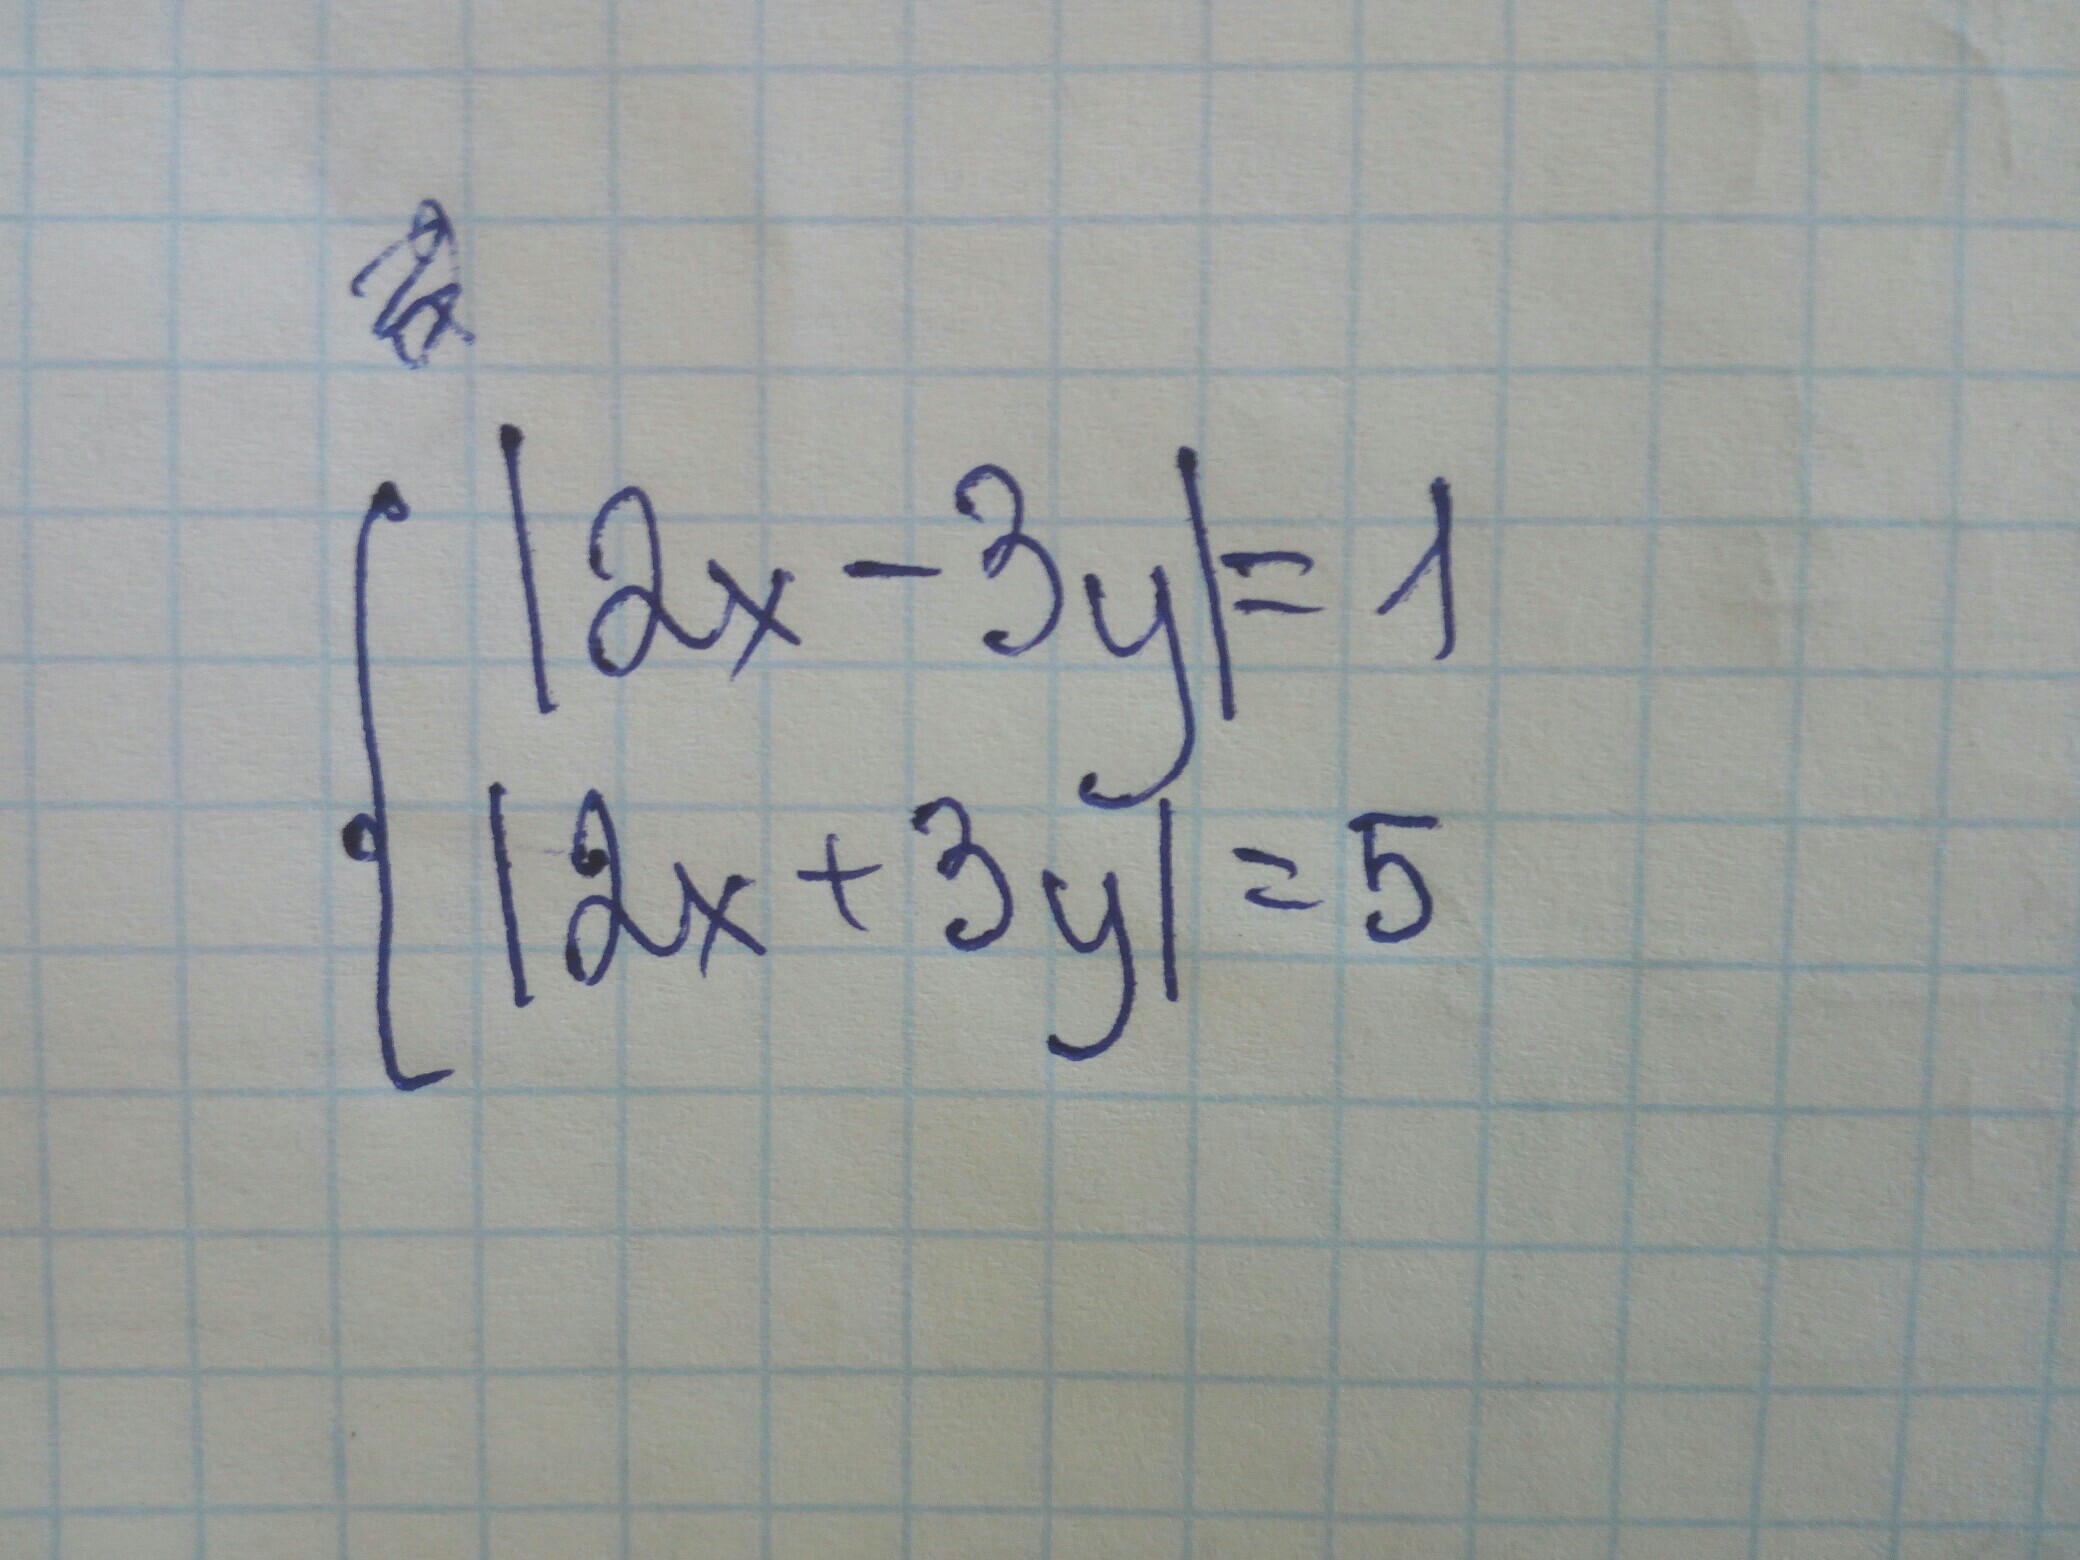 |2x - 3y| = 1
|2x + 3y| = 5